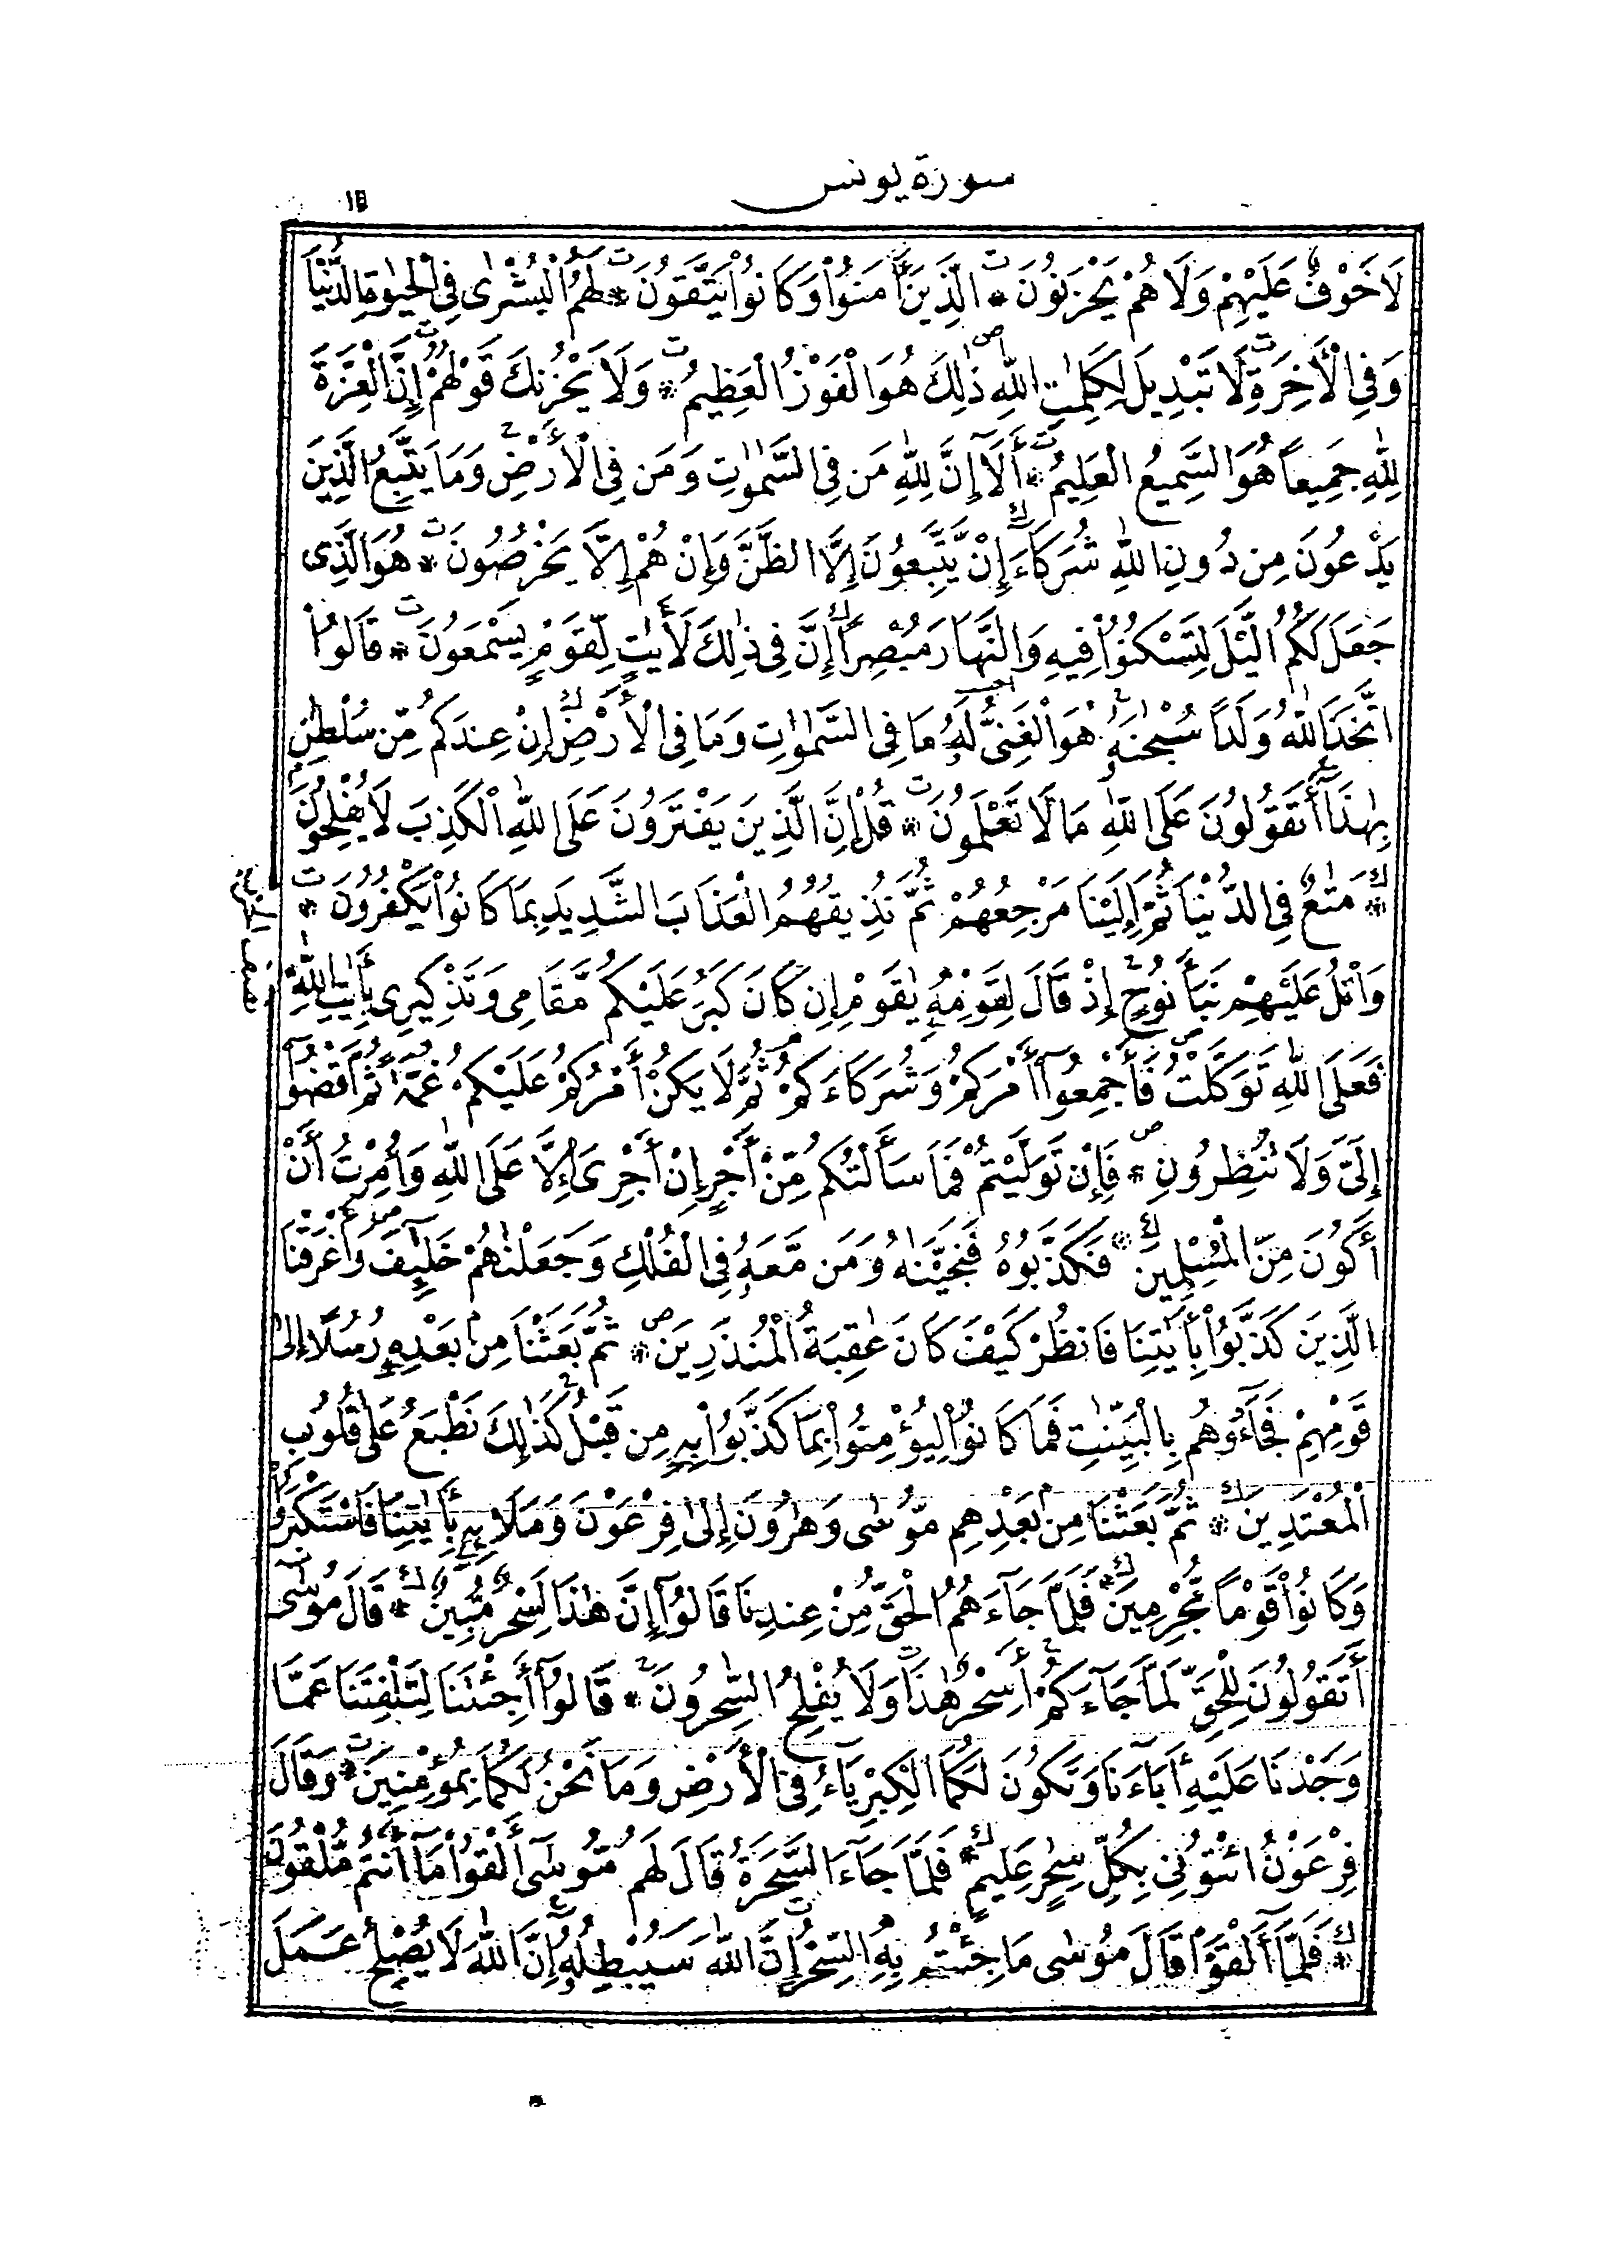 سورة يونس
لَا خَوْفٌ عَلَيْهِمْ وَلَا هُمْ يَحْزَنُونَ * الَّذِينَ ءَامَنُوا۟ وَكَانُوا۟ يَتَّقُونَ * لَهُمُ الْبُشْرَىٰ فِى الْحَيَوٰةِ الدُّنْيَا
وَفِى الْأَخِرَةِ لَا تَبْدِيلَ لِكَلِمَٰتِ اللَّهِ ذَٰلِكَ هُوَ الْفَوْزُ الْعَظِيمُ * وَلَا يَحْزُنكَ قَوْلُهُمْ إِنَّ الْعِزَّةَ
لِلَّهِ جَمِيعاً هُوَ السَّمِيعُ الْعَلِيمُ * أَلَآ إِنَّ لِلَّهِ مَن فِى السَّمَٰوَٰتِ وَمَن فِى الْأَرْضِ وَمَا يَتَّبِعُ الَّذِينَ
يَدْعُونَ مِن دُونِ اللَّهِ شُرَكَآءَ إِنْ يَّتَّبِعُونَ إِلَّا الظَّنَّ وَإِنْ هُمْ إِلَّا يَخْرُصُونَ * هُوَ الَّذِى
جَعَلَ لَكُمُ الَّيْلَ لِتَسْكُنُوا۟ فِيهِ وَالنَّهَارَ مُبْصِراً إِنَّ فِى ذَٰلِكَ لَأَيَٰتٍ لِّقَوْمٍ يَسْمَعُونَ * قَالُوا۟
اتَّخَذَ اللَّهُ وَلَداً سُبْحَٰنَهُۥ هُوَ الْغَنِىُّ لَهُۥ مَا فِى السَّمَٰوَٰتِ وَمَا فِى الْأَرْضِ إِنْ عِندَكُم مِّن سُلْطَٰنٍ
بِهَٰذَآ أَتَقُولُونَ عَلَى اللَّهِ مَا لَا تَعْلَمُونَ * قُلْ إِنَّ الَّذِينَ يَفْتَرُونَ عَلَى اللَّهِ الْكَذِبَ لَا يُفْلِحُونَ
* مَتَٰعٌ فِى الدُّنْيَا ثُمَّ إِلَيْنَا مَرْجِعُهُمْ ثُمَّ نُذِيقُهُمُ الْعَذَابَ الشَّدِيدَ بِمَا كَانُوا۟ يَكْفُرُونَ *
نصف الحزب
وَاتْلُ عَلَيْهِمْ نَبَأَ نُوحٍ إِذْ قَالَ لِقَوْمِهِۦ يَٰقَوْمِ إِن كَانَ كَبُرَ عَلَيْكُم مَّقَامِى وَتَذْكِيرِى بِأَيَٰتِ اللَّهِ
فَعَلَى اللَّهِ تَوَكَّلْتُ فَأَجْمِعُوٓا۟ أَمْرَكُمْ وَشُرَكَآءَكُمْ ثُمَّ لَا يَكُنْ أَمْرُكُمْ عَلَيْكُمْ غُمَّةً ثُمَّ اقْضُوٓا۟
إِلَىَّ وَلَا تُنظِرُونِ * فَإِن تَوَلَّيْتُمْ فَمَا سَأَلْتُكُم مِّنْ أَجْرٍ إِنْ أَجْرِىَ إِلَّا عَلَى اللَّهِ وَأُمِرْتُ أَنْ
أَكُونَ مِنَ الْمُسْلِمِينَ * فَكَذَّبُوهُ فَنَجَّيْنَٰهُ وَمَن مَّعَهُۥ فِى الْفُلْكِ وَجَعَلْنَٰهُمْ خَلَٰٓئِفَ وَأَغْرَقْنَا
الَّذِينَ كَذَّبُوا۟ بِأَيَٰتِنَا فَانظُرْ كَيْفَ كَانَ عَٰقِبَةُ الْمُنذَرِينَ * ثُمَّ بَعَثْنَا مِنۢ بَعْدِهِۦ رُسُلًا إِلَىٰ
قَوْمِهِمْ فَجَآءُوهُم بِالْبَيِّنَٰتِ فَمَا كَانُوا۟ لِيُؤْمِنُوا۟ بِمَا كَذَّبُوا۟ بِهِۦ مِن قَبْلُ كَذَٰلِكَ نَطْبَعُ عَلَىٰ قُلُوبِ
الْمُعْتَدِينَ * ثُمَّ بَعَثْنَا مِنۢ بَعْدِهِم مُّوسَىٰ وَهَٰرُونَ إِلَىٰ فِرْعَوْنَ وَمَلَإِيهِۦ بِأَيَٰتِنَا فَاسْتَكْبَرُوا۟
وَكَانُوا۟ قَوْماً مُّجْرِمِينَ * فَلَمَّا جَآءَهُمُ الْحَقُّ مِنْ عِندِنَا قَالُوٓا۟ إِنَّ هَٰذَا لَسِحْرٌ مُّبِينٌ * قَالَ مُوسَىٰ
أَتَقُولُونَ لِلْحَقِّ لَمَّا جَآءَكُمْ أَسِحْرٌ هَٰذَا وَلَا يُفْلِحُ السَّٰحِرُونَ * قَالُوٓا۟ أَجِئْتَنَا لِتَلْفِتَنَا عَمَّا
وَجَدْنَا عَلَيْهِ ءَابَآءَنَا وَتَكُونَ لَكُمَا الْكِبْرِيَآءُ فِى الْأَرْضِ وَمَا نَحْنُ لَكُمَا بِمُؤْمِنِينَ * وَقَالَ
فِرْعَوْنُ ائْتُونِى بِكُلِّ سَٰحِرٍ عَلِيمٍ * فَلَمَّا جَآءَ السَّحَرَةُ قَالَ لَهُم مُّوسَىٰٓ أَلْقُوا۟ مَآ أَنتُم مُّلْقُونَ
* فَلَمَّآ أَلْقَوْا۟ قَالَ مُوسَىٰ مَا جِئْتُم بِهِ السِّحْرُ إِنَّ اللَّهَ سَيُبْطِلُهُۥٓ إِنَّ اللَّهَ لَا يُصْلِحُ عَمَلَ